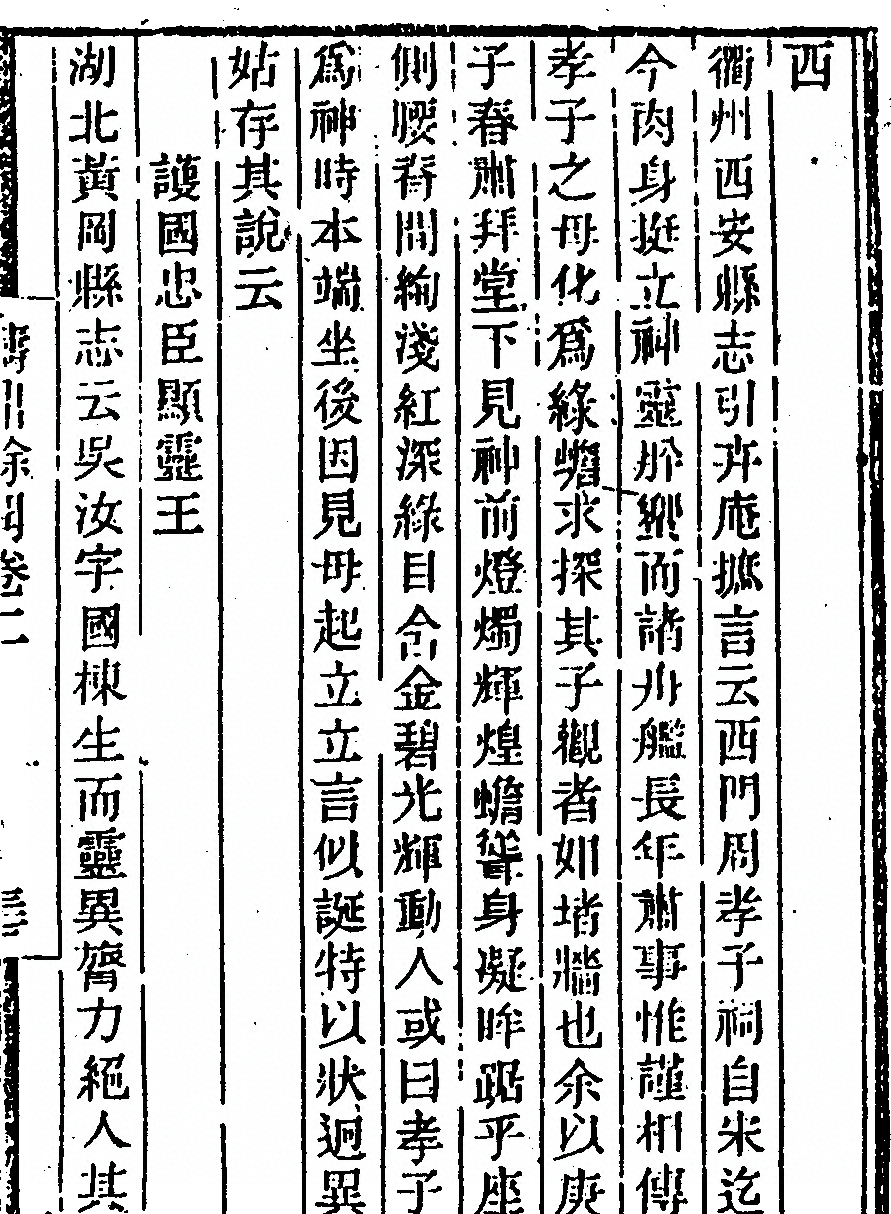 西
衢州西安縣志引卉庵摭言云西門周孝子祠自宋迄
今肉身挺立神靈於鄉而諸舟艦長年肅事惟謹相傳
孝子之母化爲綠蟾求探其子觀者如堵牆也余以庚
子春肅拜堂下見神前燈燭輝煌蟾聳身凝眸踞乎座
側腰脊間絢淺紅深綠目含金碧光輝動人或曰孝子
爲神時本端坐後因見母起立立言似誕特以狀迥異
姑存其說云
護國忠臣顯靈王
湖北黃岡縣志云吳汝字國棟生而靈異膂力絕人其
餘 卷二